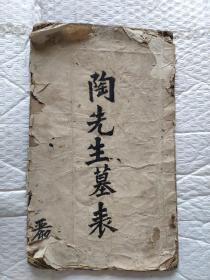 陶先生墓表